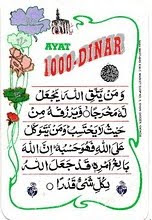 AYAT
1000-DINAR
وَمَنْ يَتَّقِ اللَّهَ يَجْعَلْ
لَهُ مَخْرَجًا وَيَرْزُقْهُ مِنْ
حَيْثُ لَا يَحْتَسِبُ وَمَنْ يَتَوَكَّلْ
عَلَى اللَّهِ فَهُوَ حَسْبُهُ إِنَّ اللَّهَ
بَالِغُ أَمْرِهِ قَدْ جَعَلَ اللَّهُ
لِكُلِّ شَيْءٍ قَدْرًا